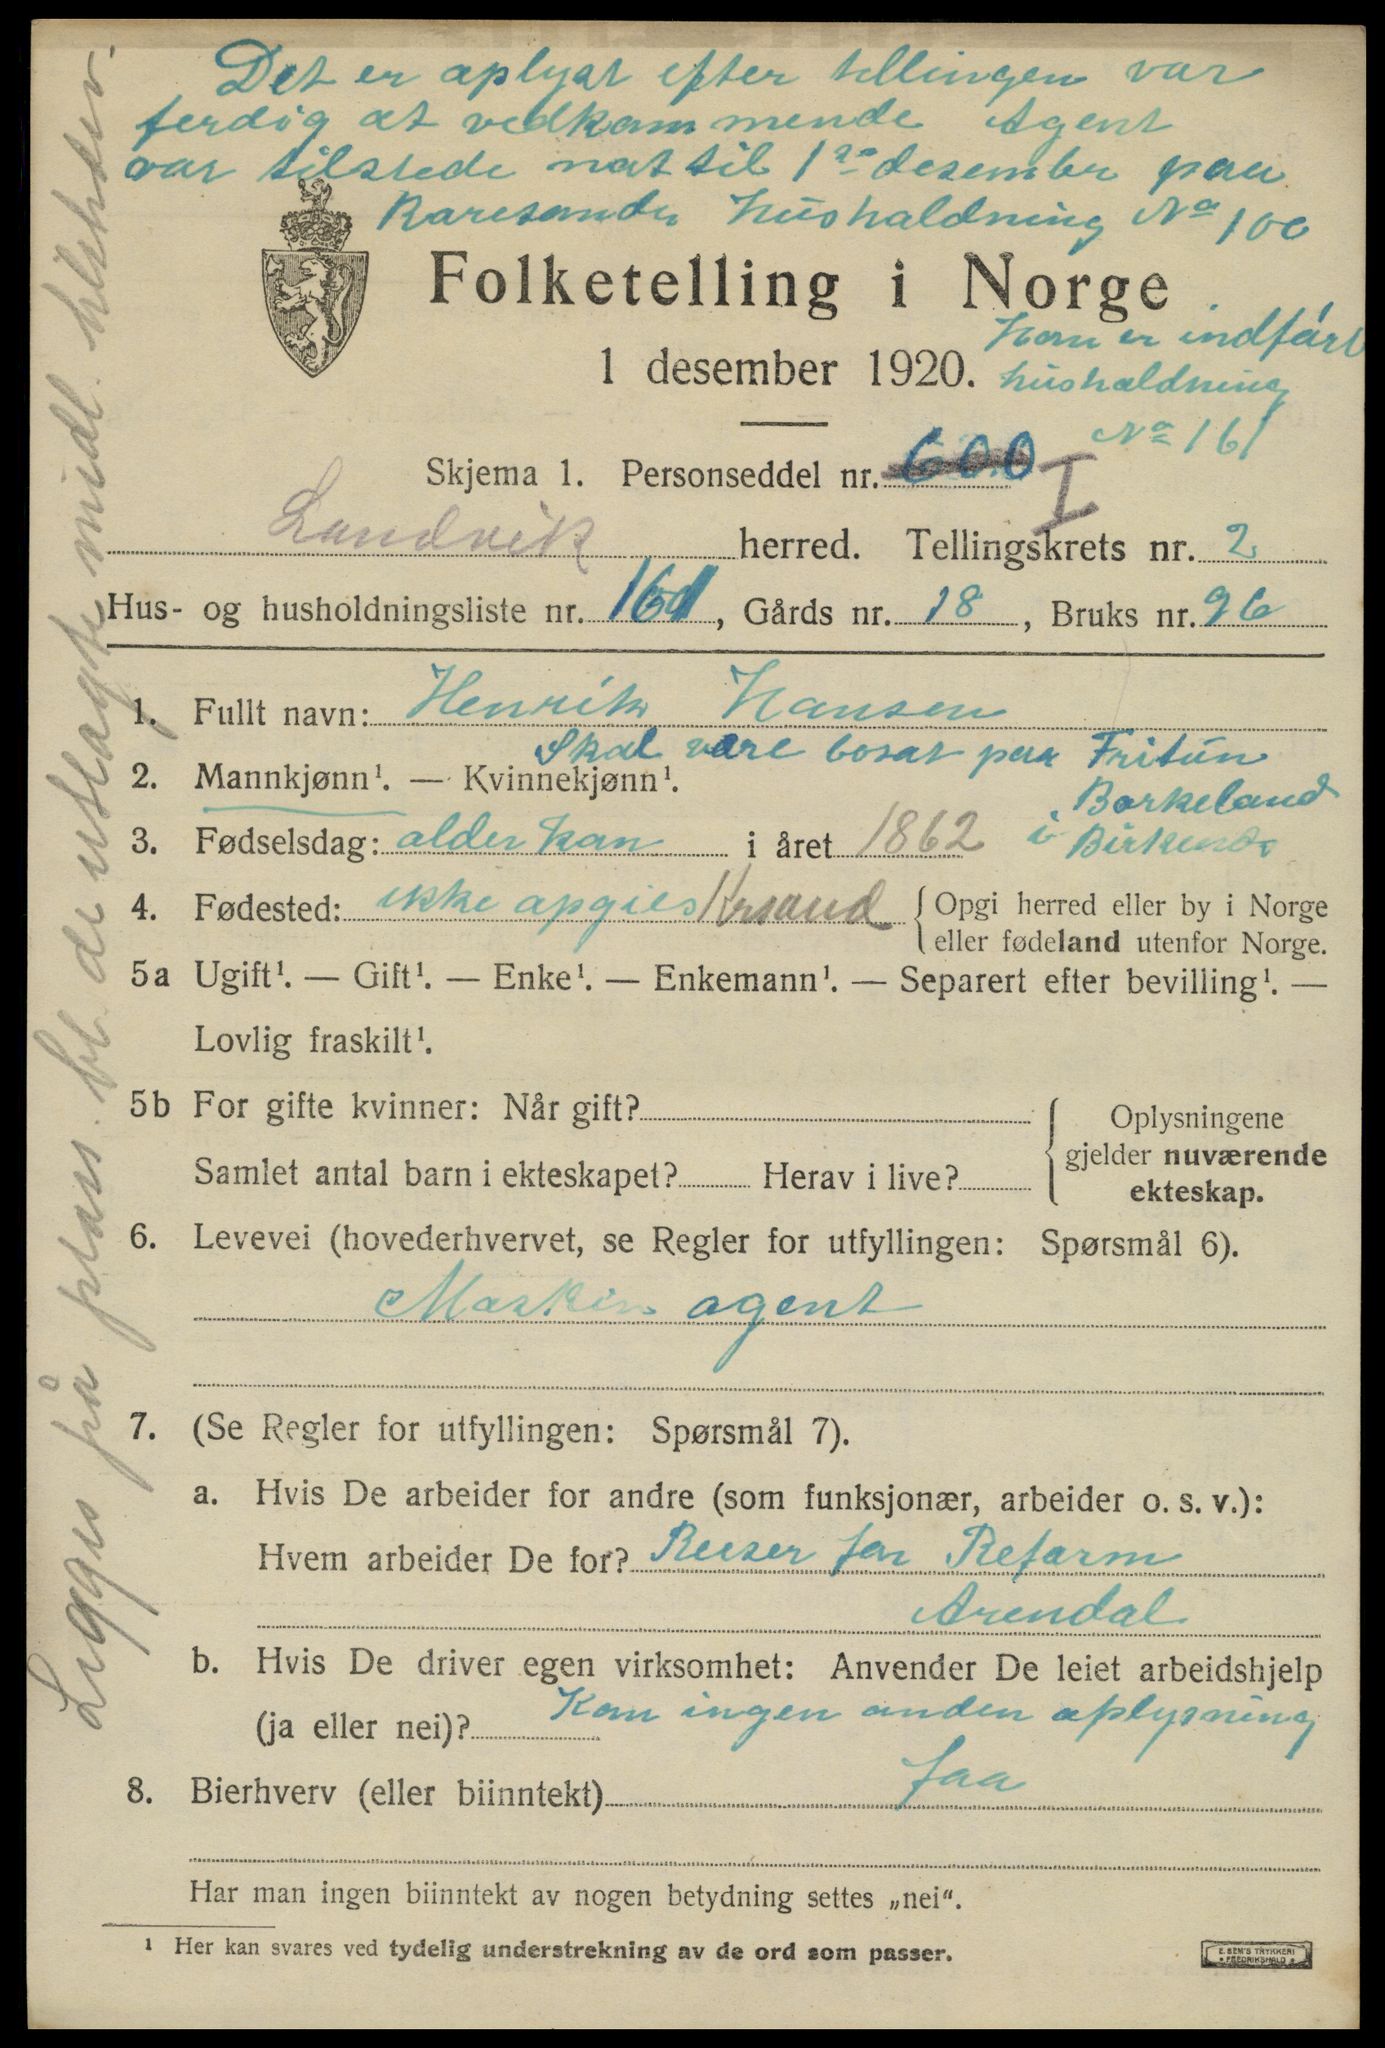 Det er oplyst efter tellingen var
ferdig at vedkommende Agent
var tilstede nat til 1ste desember paa
husholdning No 100
Folketelling i Norge
1 desember 1920.
Han er indført
husholdning
No 161
Skjema 1. Personseddel nr. 600 I
Landvik herred. Tellingskrets nr. 2
Hus- og husholdningsliste nr. 161, Gårds nr. 18, Bruks nr. 96
1. Fullt navn: Henrik Hansen
Skal være bosat paa Fritun
2. Mannkjønn¹. — Kvinnekjønn¹.
Borkeland
i Birkenes
3. Fødselsdag: alder kan i året 1862
4. Fødested: ikke opgies Krsand {Opgi herred eller by i Norge
eller fødeland utenfor Norge.
5a Ugift¹. — Gift¹. — Enke¹. — Enkemann¹. — Separert efter bevilling¹. —
Lovlig fraskilt¹.
5b For gifte kvinner: Når gift?
Samlet antal barn i ekteskapet? Herav i live?
Oplysningene
gjelder nuværende
ekteskap.
6. Levevei (hovederhvervet, se Regler for utfyllingen: Spørsmål 6).
Maskin agent
7. (Se Regler for utfyllingen: Spørsmål 7).
a. Hvis De arbeider for andre (som funksjonær, arbeider o. s. v.):
Hvem arbeider De for? Reiser for Reform
Arendal
b. Hvis De driver egen virksomhet: Anvender De leiet arbeidshjelp
(ja eller nei)? Kan ingen anden oplysning
8. Bierhverv (eller biinntekt) faa
Har man ingen biinntekt av nogen betydning settes „nei“.
¹ Her kan svares ved tydelig understrekning av de ord som passer.
E. SEM'S TRYKKERI
FREDRIKSHALD
Ligges på plass bl. de utlagte midl.